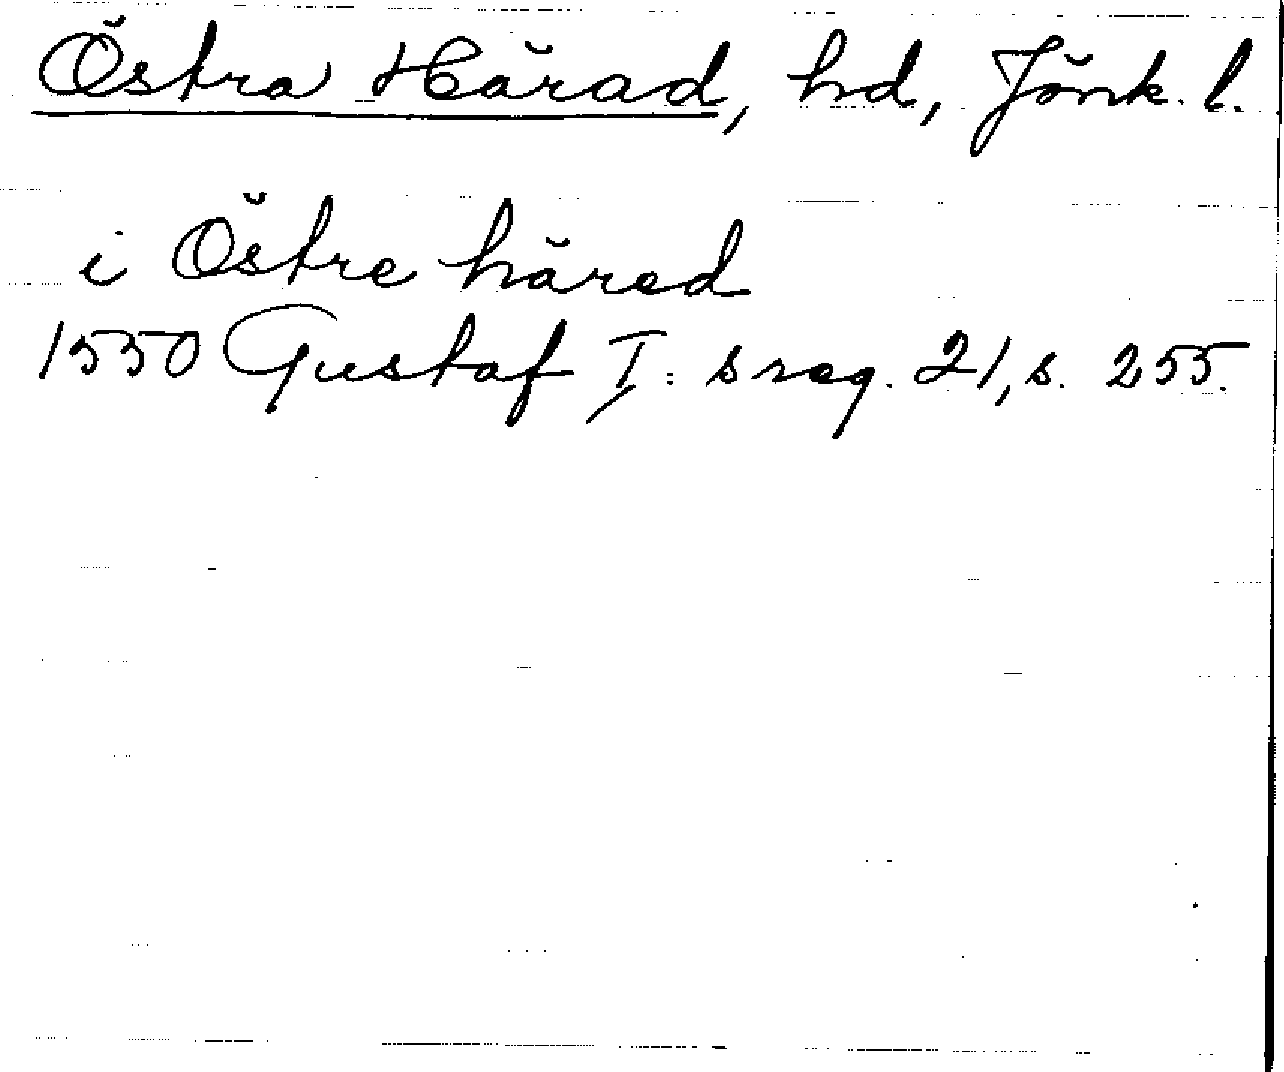 Östra Härad, hd, Jönk. l.
i Östre häred
1550 Gustaf I: s reg. 21, s. 255.